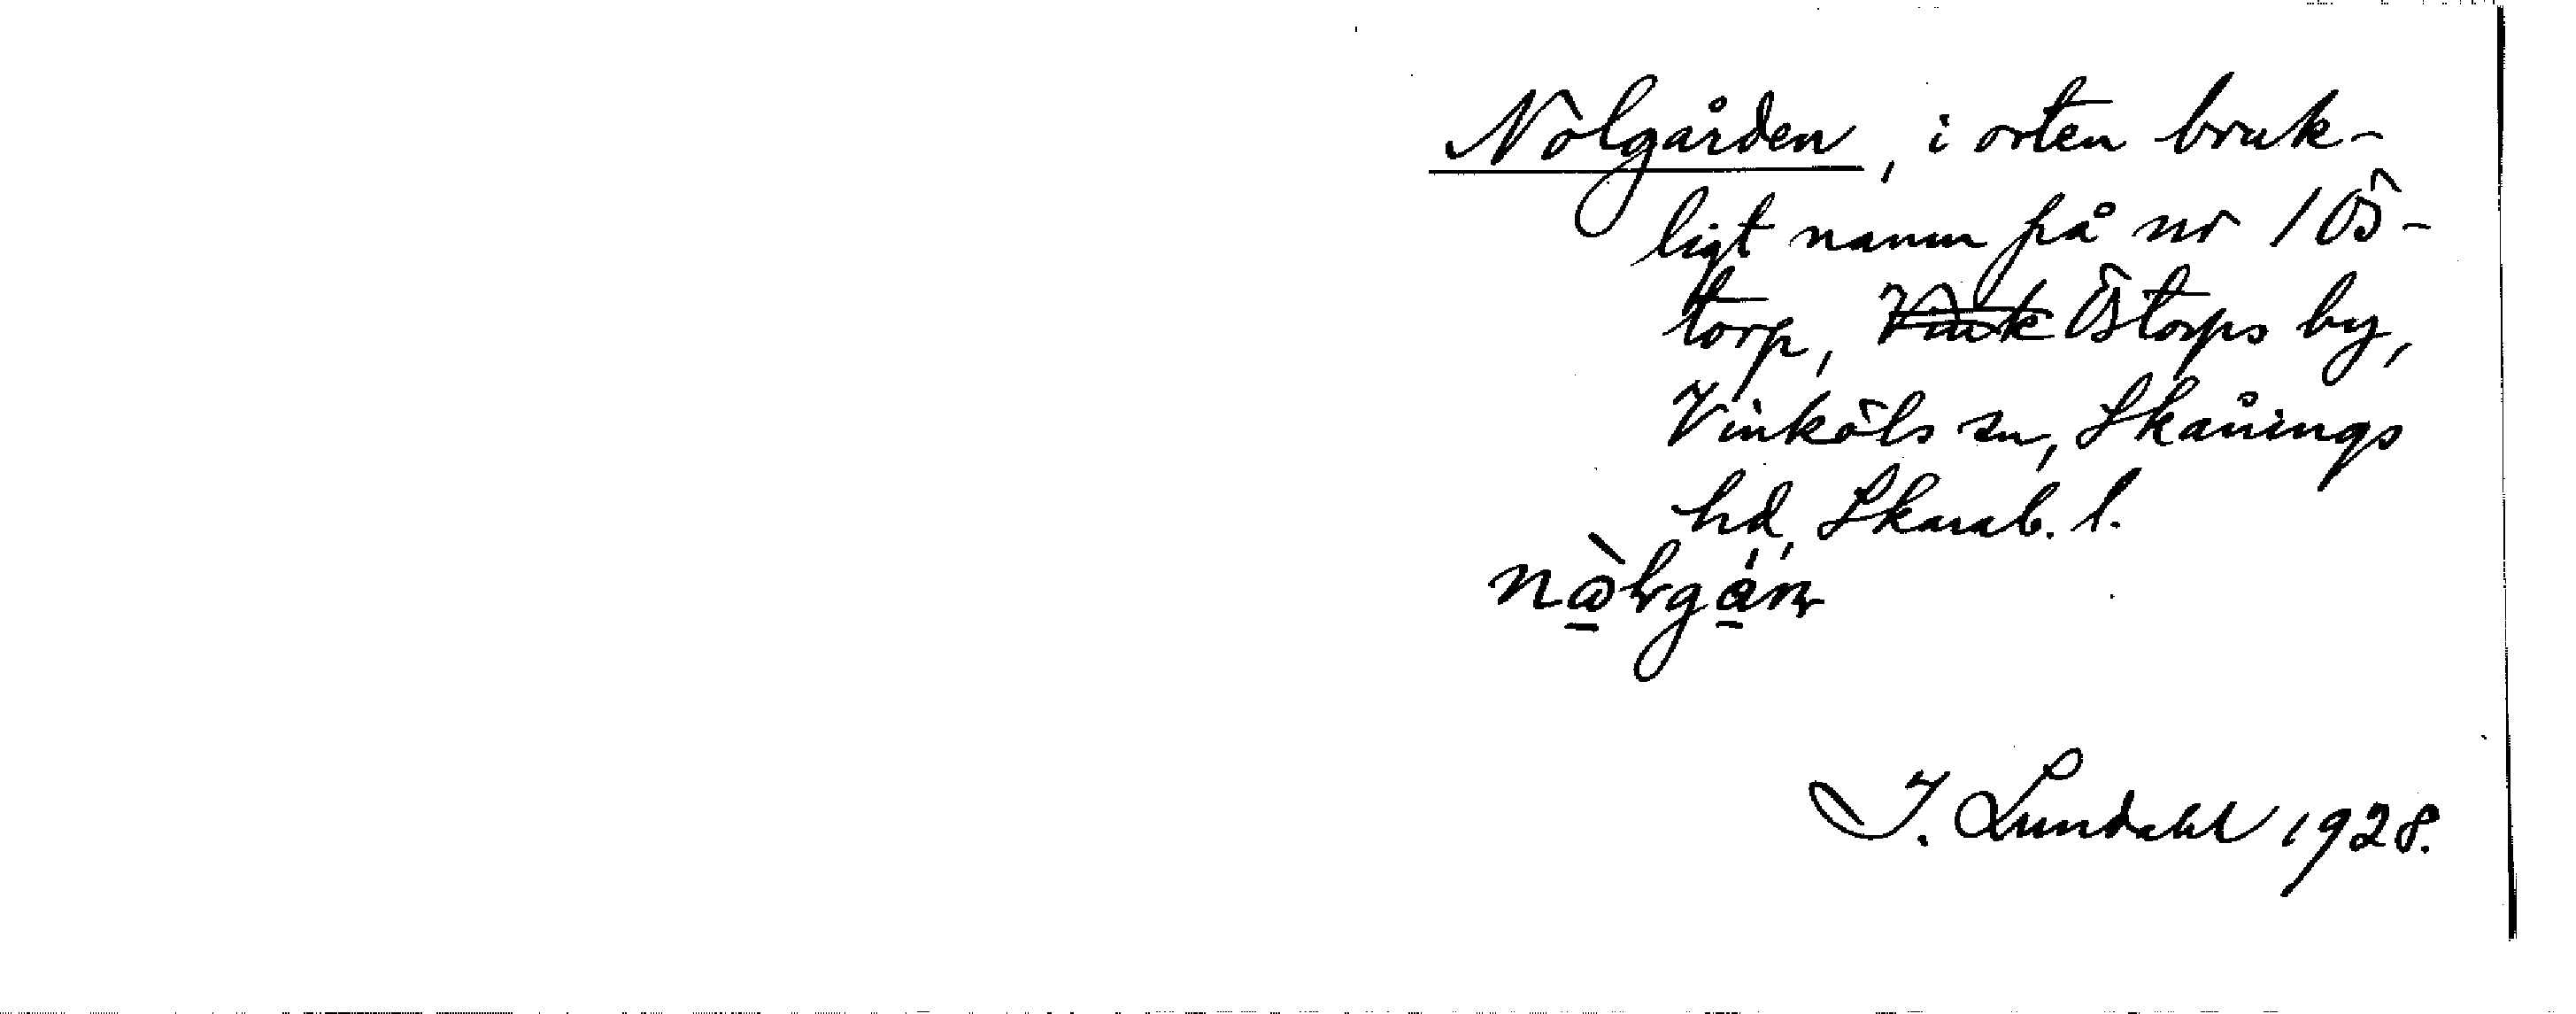 Nolgården, i orten bruk-
ligt namn på nr 1 Ös-
torp, Östorps by,
Vinköls sn, Skånings
hd, Skarab. l.
I. Lundahl 1928.